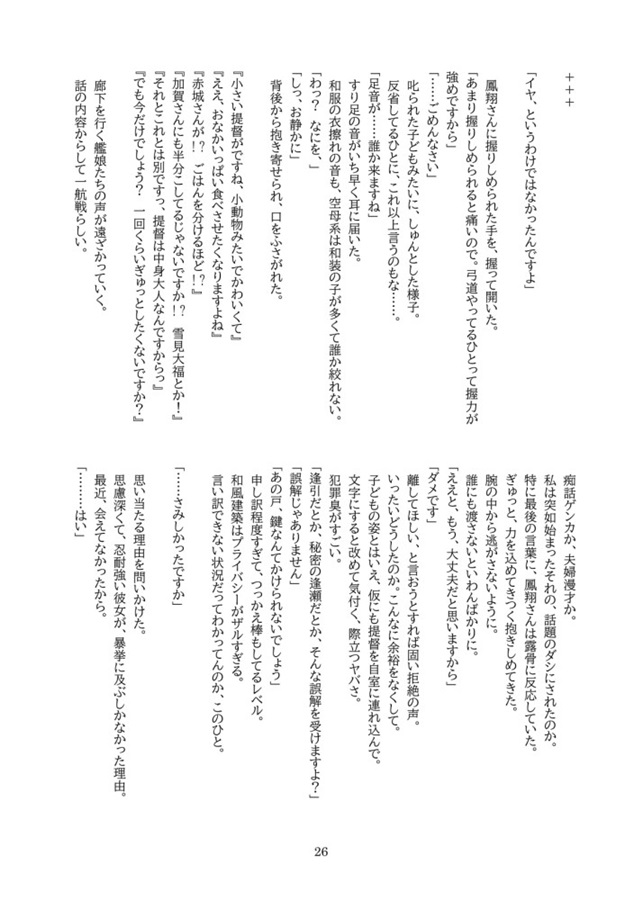 +++
「イヤ、というわけではなかったんですよ」
鳳翔さんに握りしめられた手を、握って開いた。
「あまり握りしめられると痛いので。弓道やってるひとって握力が
強めですから」
「……ごめんなさい」
叱られた子どもみたいに、しゅんとした様子。
反省してるひとに、これ以上言うのもな……。
「足音が……誰か来ますね」
すり足の音がいち早く耳に届いた。
和服の衣擦れの音も、空母系は和装の子が多くて誰か絞れない。
「わっ？　なにを、」
「しっ、お静かに」
背後から抱き寄せられ、口をふさがれた。
『小さい提督がですね、小動物みたいでかわいくて』
『ええ、おなかいっぱい食べさせたくなりますよね』
『赤城さんが!?　ごはんを分けるほど!?』
『加賀さんにも半分こしてるじゃないですか!?　雪見大福とか！』
『それとこれとは別ですっ、提督は中身大人なんですからっ』
『でも今だけでしょう？　一回くらいぎゅっとしたくないですか？』
廊下を行く艦娘たちの声が遠ざかっていく。
話の内容からして一航戦らしい。
痴話ゲンカか、夫婦漫才か。
私は突如始まったそれの、話題のダシにされたのか。
特に最後の言葉に、鳳翔さんは露骨に反応していた。
ぎゅっと、力を込めてきつく抱きしめてきた。
腕の中から逃がさないように。
誰にも渡さないといわんばかりに。
「ええと、もう、大丈夫だと思いますから」
「ダメです」
離してほしい、と言おうとすれば固い拒絶の声。
いったいどうしたのか。こんなに余裕をなくして。
子どもの姿とはいえ、仮にも提督を自室に連れ込んで。
文字にすると改めて気付く、際立つヤバさ。
犯罪臭がすごい。
「逢引だとか、秘密の逢瀬だとか、そんな誤解を受けますよ？」
「誤解じゃありません」
「あの戸、鍵なんてかけられないでしょう」
申し訳程度すぎて、つっかえ棒もしてるレベル。
和風建築はプライバシーがザルすぎる。
言い訳できない状況だってわかってんのか、このひと。
「……さみしかったですか」
思い当たる理由を問いかけた。
思慮深くて、忍耐強い彼女が、暴挙に及ぶしかなかった理由。
最近、会えてなかったから。
「………はい」
26